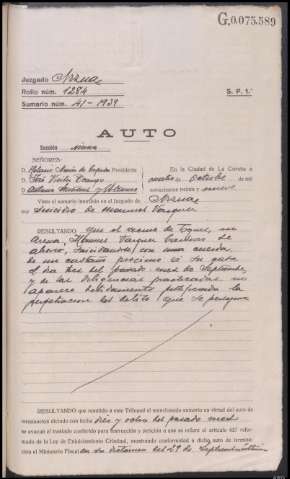 G,0.075.589
Juzgado
Rollo núm. 1284
Sumario núm. 41-1939
S. P. 1.ª
AUTO
Sección
SEÑORES:
D. Presidente
D. José
D. Adano
En la Ciudad de La Coruña a
cuatro de Octubre de mil
novecientos treinta y nueve
Visto el sumario instruido en el Juzgado de
Suicidio de Manuel Vazquez
RESULTANDO que el vecino de
de un castaño proximo a su casa
el dia tres del pasado mes de Septiembre,
y de las diligencias practicadas no
aparece debidamente justificada la
perpetracion del delito que se persigue
RESULTANDO que remitido a este Tribunal el mencionado sumario en virtud del auto de
terminación dictado con fecha diez y ocho del pasado mes
se evacuó el traslado conferido para instrucción y petición a que se refiere el artículo 627 refor-
mado de la Ley de Enjuiciamiento Criminal, mostrando conformidad a dicho auto de termina-
ción el Ministerio Fiscal en su dictamen del 29 de Septiembre último